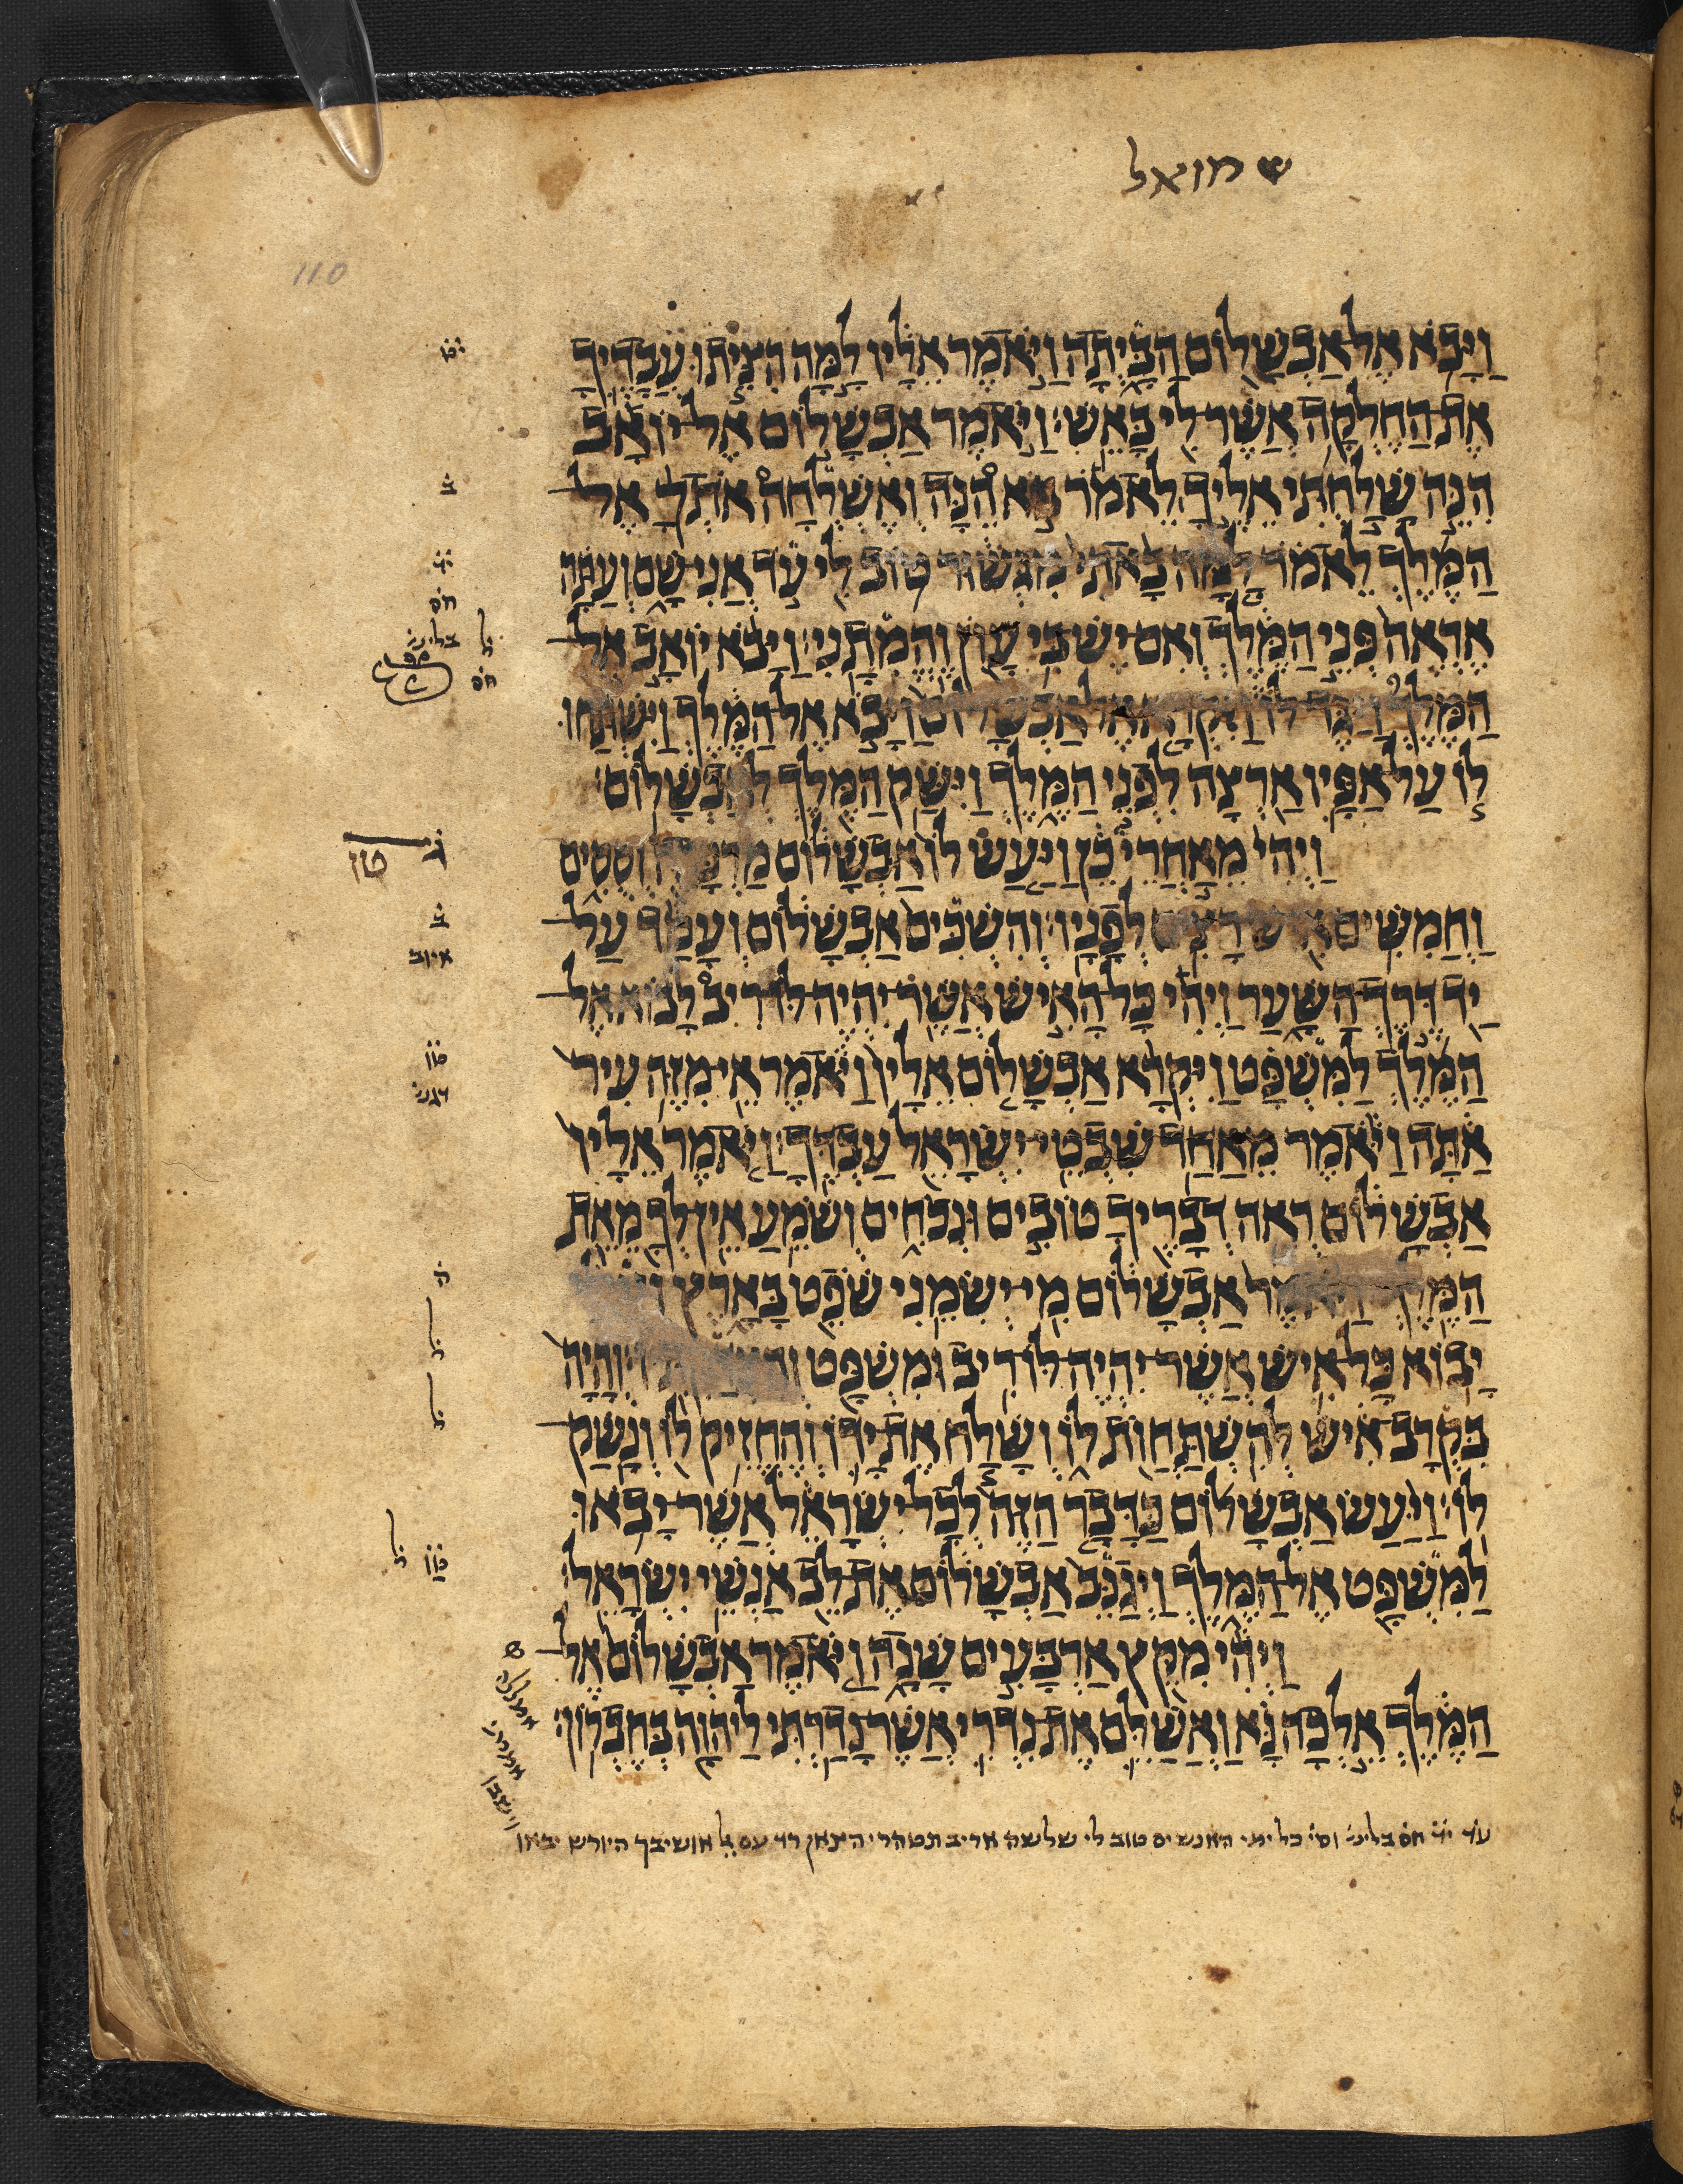 שמואל
110
וַיָּבֹא אֶל אַבְשָׁלוֹם הַבָּיְתָה וַיֹּאמֶר אֵלָיו לָמָּה הִצִּיתוּ עֲבָדֶיךָ
אֶת הַחֶלְקָה אֲשֶׁר לִי בָּאֵשׁ׃ וַיֹּאמֶר אַבְשָׁלוֹם אֶל יוֹאָב
הִנֵּה שָׁלַחְתִּי אֵלֶיךָ לֵאמֹר הֵנָּה וְאֶשְׁלְחָה אֹתְךָ אֶל
הַמֶּלֶךְ לֵאמֹר לָמָּה בָּאתִי מִגְּשׁוּר טוֹב לִי עֹד אֲנִי שָׁם וְעַתָּה
אֶרְאֶה פְּנֵי הַמֶּלֶךְ וְאִם יֶשׁ בִּי עָוֹן וֶהֱמִתָנִי׃ וַיָּבֹא יוֹאָב אֶל
הַמֶּלֶךְ וַיַּגֶּד לוֹ אֶל אַבְשָׁלוֹם וַיָּבֹא אֶל הַמֶּלֶךְ וַיִּשְׁתַּחוּ
לוֹ עַל אַפָּיו אַרְצָה לִפְנֵי הַמֶּלֶךְ וַיִּשַּׁק הַמֶּלֶךְ לְאַבְשָׁלוֹם׃
וַיְהִי מֵאַחֲרֵי כֵן וַיַּעַשׂ לוֹ אַבְשָׁלוֹם מֶרְכָּבָה וְסֻסִים
וַחֲמִשִּׁים לְפָנָיו׃ וְהִשְׁכִּים אַבְשָׁלוֹם וְעָמַד עַל
יַד דֶּרֶךְ הַשָּׁעַר וַיְהִי כָּל הָאִישׁ אֲשֶׁר יִהְיֶה לּוֹ רִיב לָבוֹא אֶל
הַמֶּלֶךְ לַמִּשְׁפָּט וַיִּקְרָא אַבְשָׁלוֹם אֵלָיו וַיֹּאמֶר אֵי מִזֶּה עִיר
אַתָּה וַיֹּאמֶר מֵאַחַד שִׁבְטֵי יִשְׂרָאֵל עַבְדֶּךָ׃ וַיֹּאמֶר אֵלָיו
אַבְשָׁלוֹם רְאֵה דְבָרֶיךָ טוֹבִים וּנְכֹחִים וְשֹׁמֵעַ אֵין לְךָ מֵאֵת
אַבְשָׁלוֹם מִי יְשִׂמֵנִי שֹׁפֵט בָּאָרֶץ
יָבוֹא כָּל אִישׁ אֲשֶׁר יִהְיֶה לּוֹ רִיב וּמִשְׁפָּט וְהָיָה
בִּקְרָב אִישׁ לְהִשְׁתַּחֲוֹת לוֹ וְשָׁלַח אֶת יָדוֹ וְהֶחֱזִיק לוֹ וְנָשַׁק
לוֹ׃ וַיַּעַשׂ אַבְשָׁלוֹם כַּדָּבָר הַזֶּה לְכָל יִשְׂרָאֵל אֲשֶׁר יָבֹאוּ
לַמִּשְׁפָּט אֶל הַמֶּלֶךְ וַיְגַנֵּב אַבְשָׁלוֹם אֶת לֵב אַנְשֵׁי יִשְׂרָאֵל׃
וַיְהִי מִקֵּץ אַרְבָּעִים שָׁנָה וַיֹּאמֶר אַבְשָׁלוֹם אֶל
הַמֶּלֶךְ אֵלְכָה נָּא וַאֲשַׁלֵּם אֶת נִדְרִי אֲשֶׁר נָדַרְתִּי לַיהוָה בְּחֶבְרוֹן׃
עד יד חס בליש וס כל ימי האנשים טוב לי שלשה אריב תטהרי דד עם אושיבך היורש יבאו